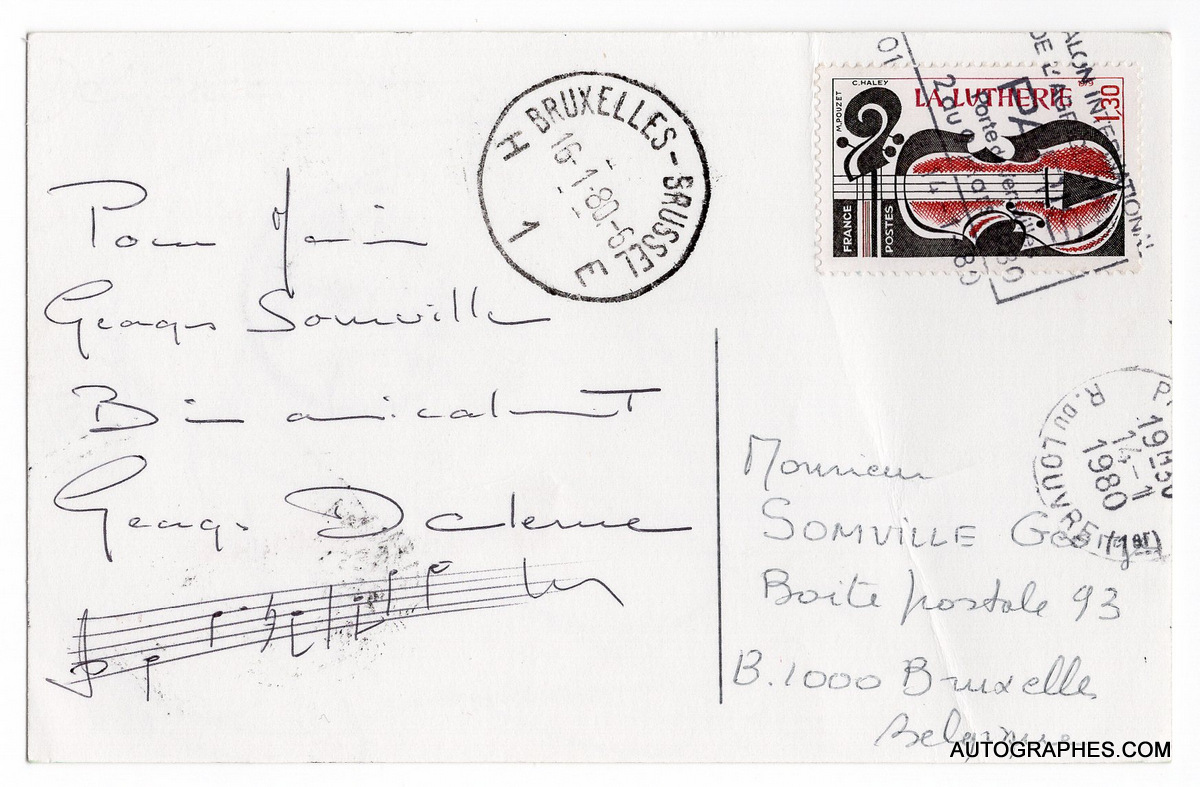 Pour Yanin
Georges Somville
Bien amicalement
Georges Delerue
BRUXELLES-BRUSSEL
H
16-1-80-6
1 E
C. HALEY
M. POUZET
LA LUTHERIE
1979
1,30
FRANCE
POSTES
SALON INTERNATIONAL
DE L'AGRI
PARIS
01
R. DU LOUVRE (1er)
19H30
14-1
1980
Monsieur
SOMVILLE Georges
Boite postale 93
B.1000 Bruxelles
Belgique
AUTOGRAPHES.COM